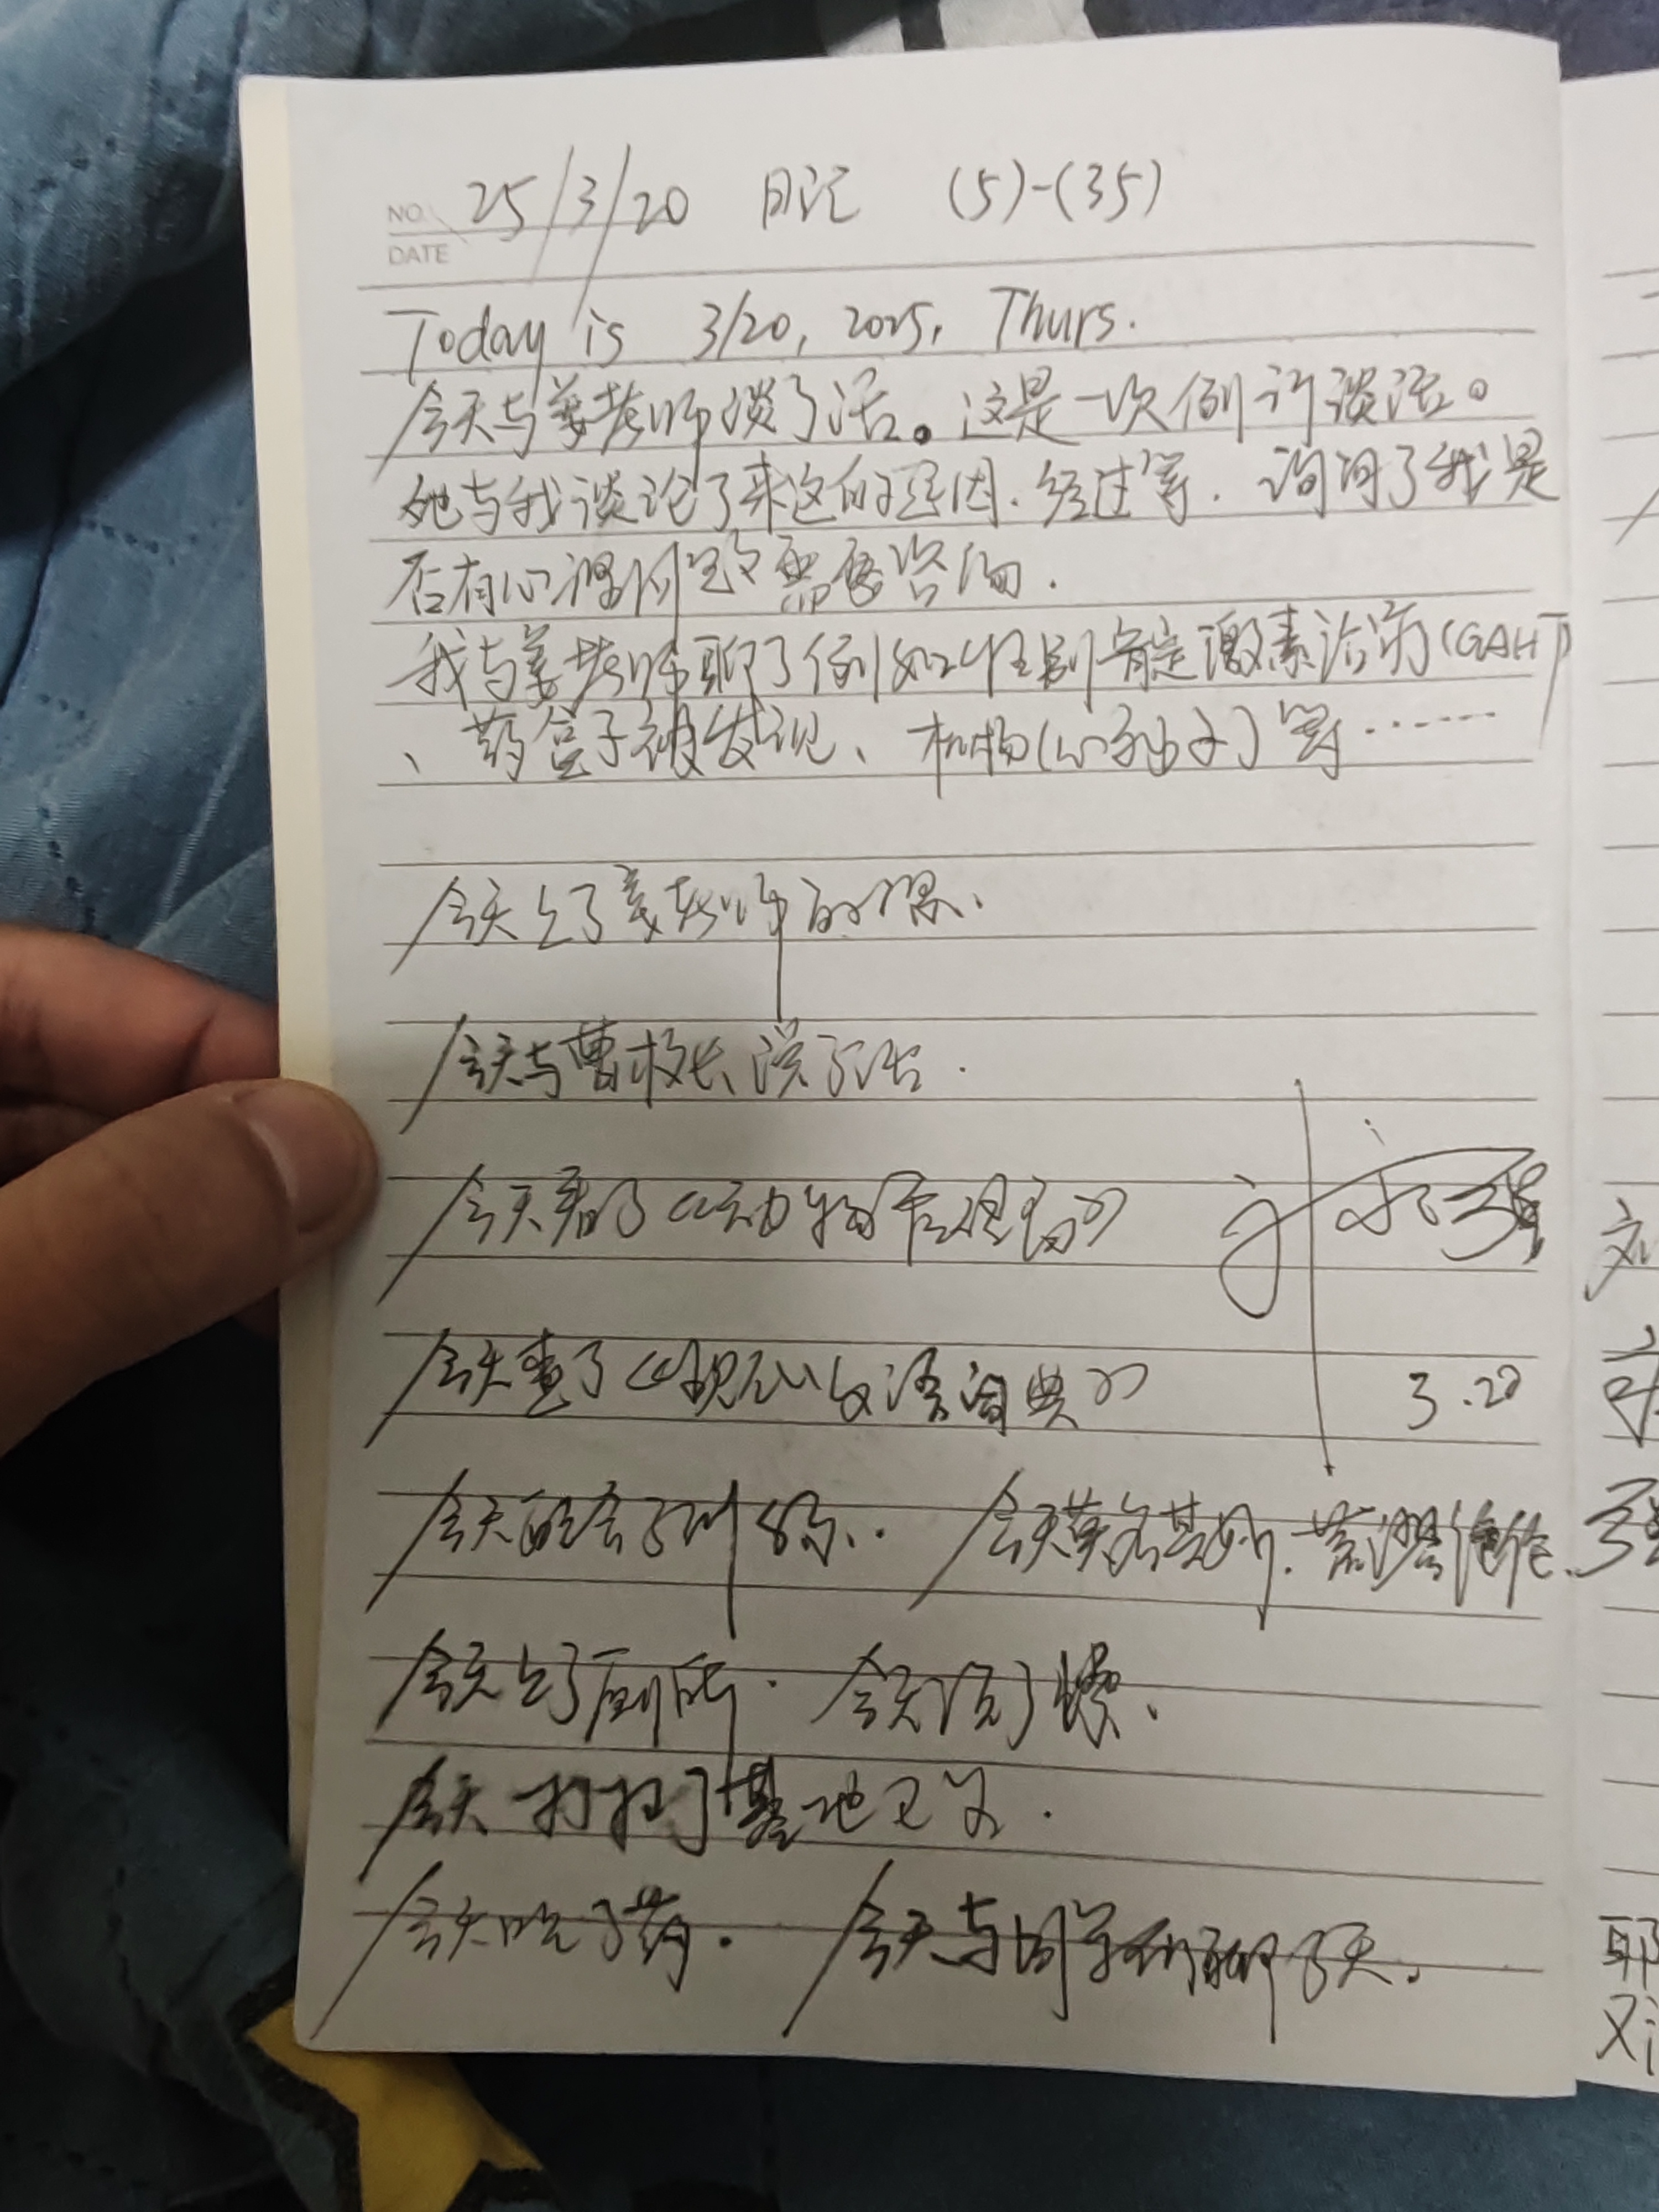 NO. 25/3/20 日记 (5)-(35)
DATE
Today is 3/20, 2025, Thurs.
今天与姜老师谈了话。这是一次例行谈话。
她与我谈论了来这的原因、经过等. 询问了我是
否有心理问题需要咨询.
我与姜老师聊了例如性别肯定激素治疗(GAHT)
、药盒子被发现、
等……
今天上了姜老师的课.
今天与曹校长谈了话.
今天看了《动物管理局》
今天查了《现代汉语词典》
3.20
今天 会了 今天莫名其妙.荒
今天上了厕所. 今天洗了澡.
今天打扫了基地卫生.
今天吃了药. 今天与同学们聊了天.